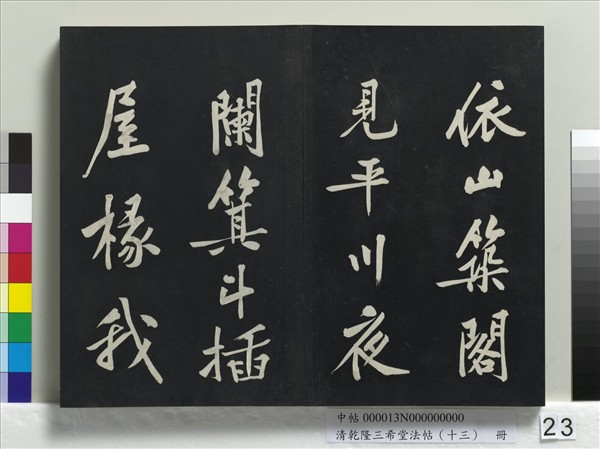 依山築閣
見平川夜
闌箕斗插
屋椽我
中帖 000013N000000000
清乾隆三希堂法帖（十三） 冊
23